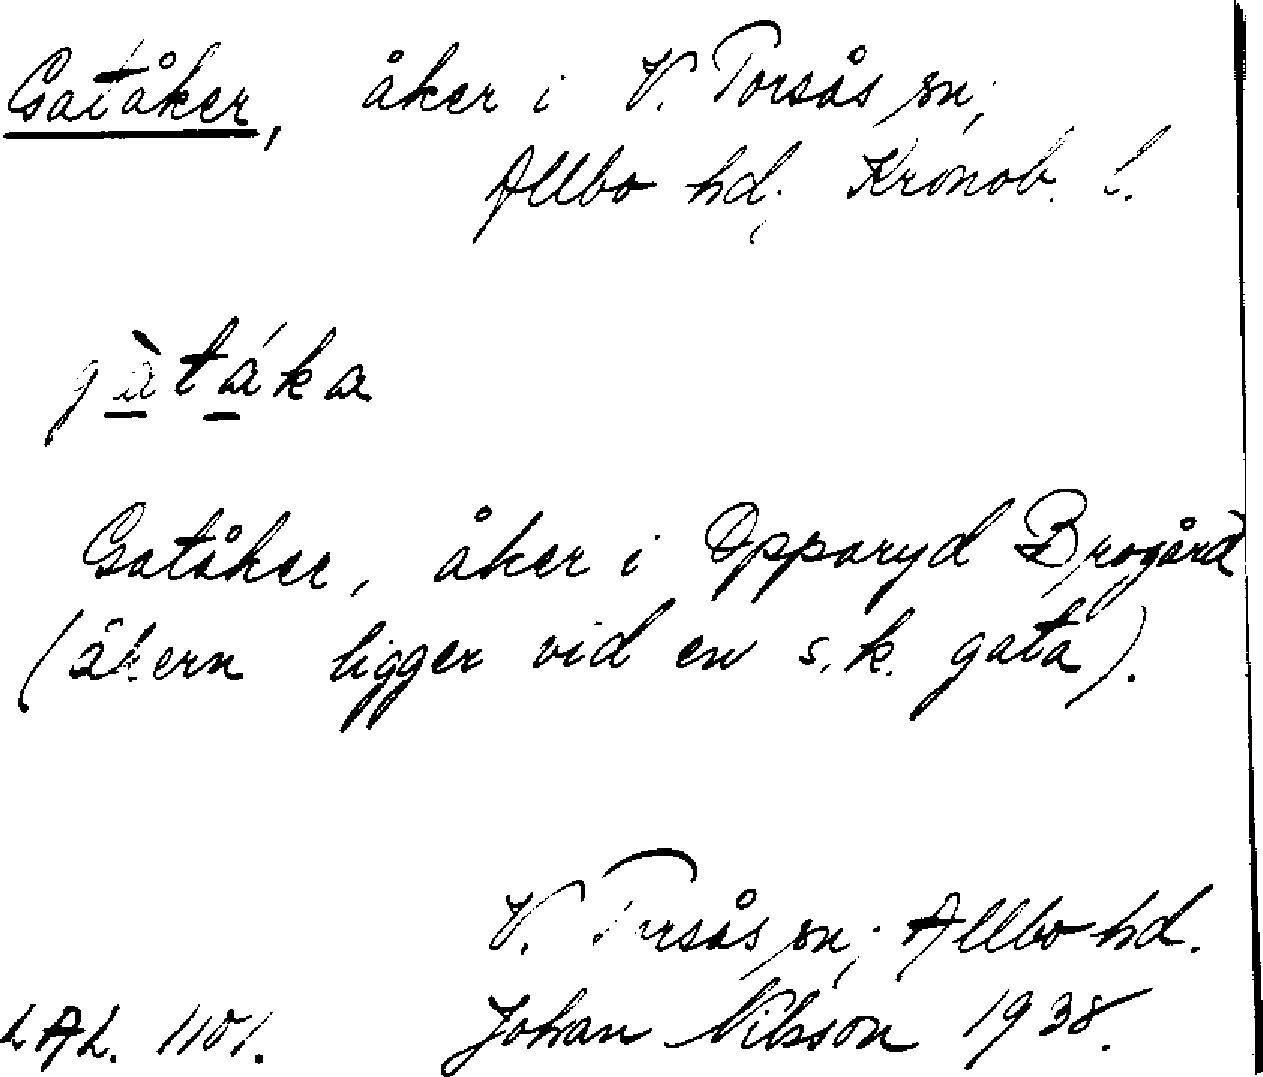 Gatåker, åker i V. Torsås sn;
Allbo hd; Kronob. l.
gàtáka
Gatåker, åker i Opparyd Brogård
(åkern ligger vid en s.k. gata).
V. Torsås sn; Allbo hd.
LAL. 1101. Johan Nilsson 1938.